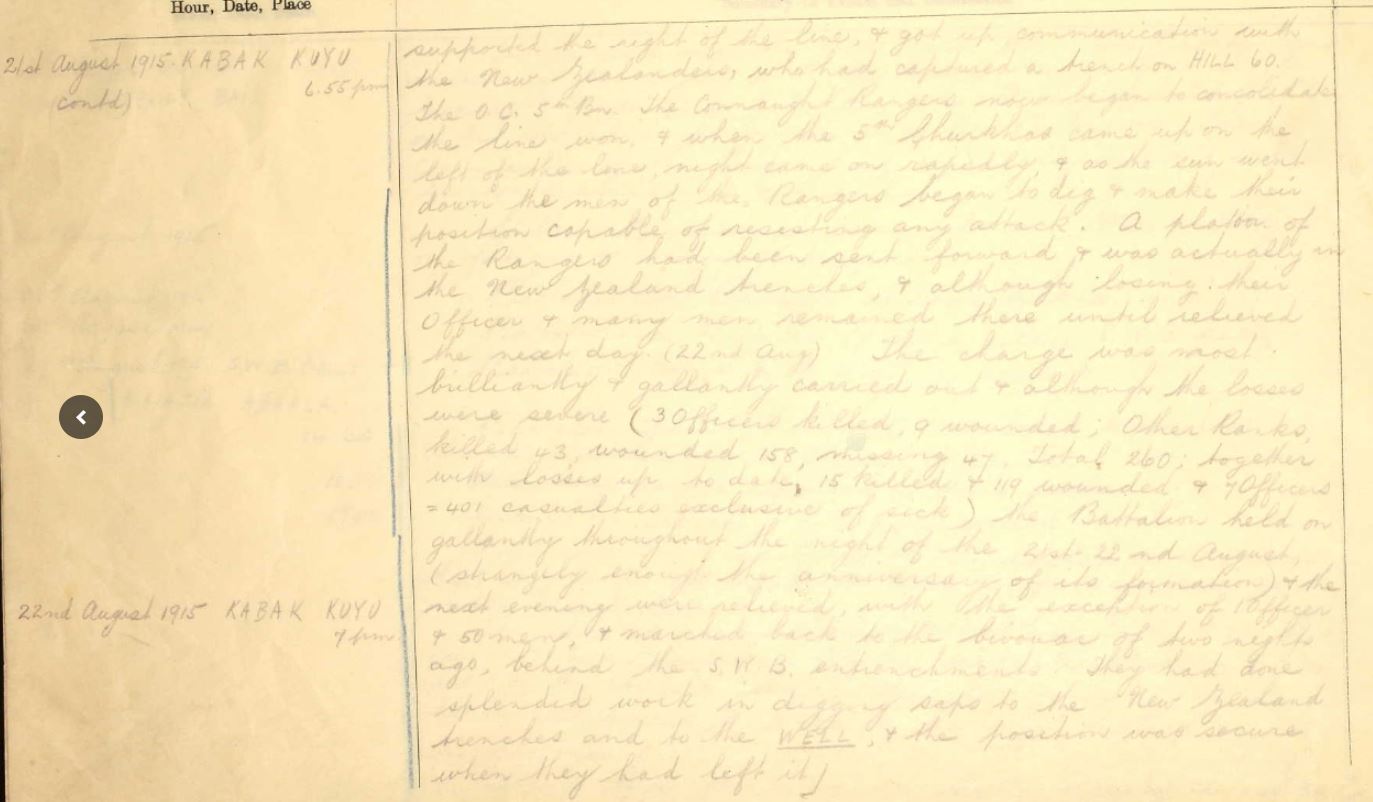 Hour, Date, Place
21st August 1915. KABAK KUYU
6.55 pm
(contd)
supported the right of the line, & got up communication with
the New Zealanders, who had captured a trench on HILL 60.
The O.C. 5th Bn. The Connaught Rangers now began to consolidate
the line won, & when the 5th Ghurkhas came up on the
left of the line, night came on rapidly, & as the sun went
down the men of the Rangers began to dig & make their
position capable of resisting any attack. A platoon of
the Rangers had been sent forward & was actually in
the New Zealand trenches, & although losing their
Officer & many men remained there until relieved
the next day. (22nd Aug) The charge was most
brilliantly & gallantly carried out & although the losses
were severe (3 Officers killed, 9 wounded; Other Ranks,
killed 43, wounded 158, missing 47. Total 260; together
with losses up to date, 15 killed & 119 wounded & 7 Officers
= 401 casualties exclusive of sick) the Battalion held on
gallantly throughout the night of the 21st 22nd August,
(strangely enough the anniversary of its formation) & the
22nd August 1915 KABAK KUYU
7 pm
next evening were relieved, with the exception of 1 Officer
& 50 men, & marched back to the bivouac of two nights
ago, behind the S.W.B. entrenchments. They had done
splendid work in digging saps to the New Zealand
trenches and to the WELL, & the position was secure
when they had left it]